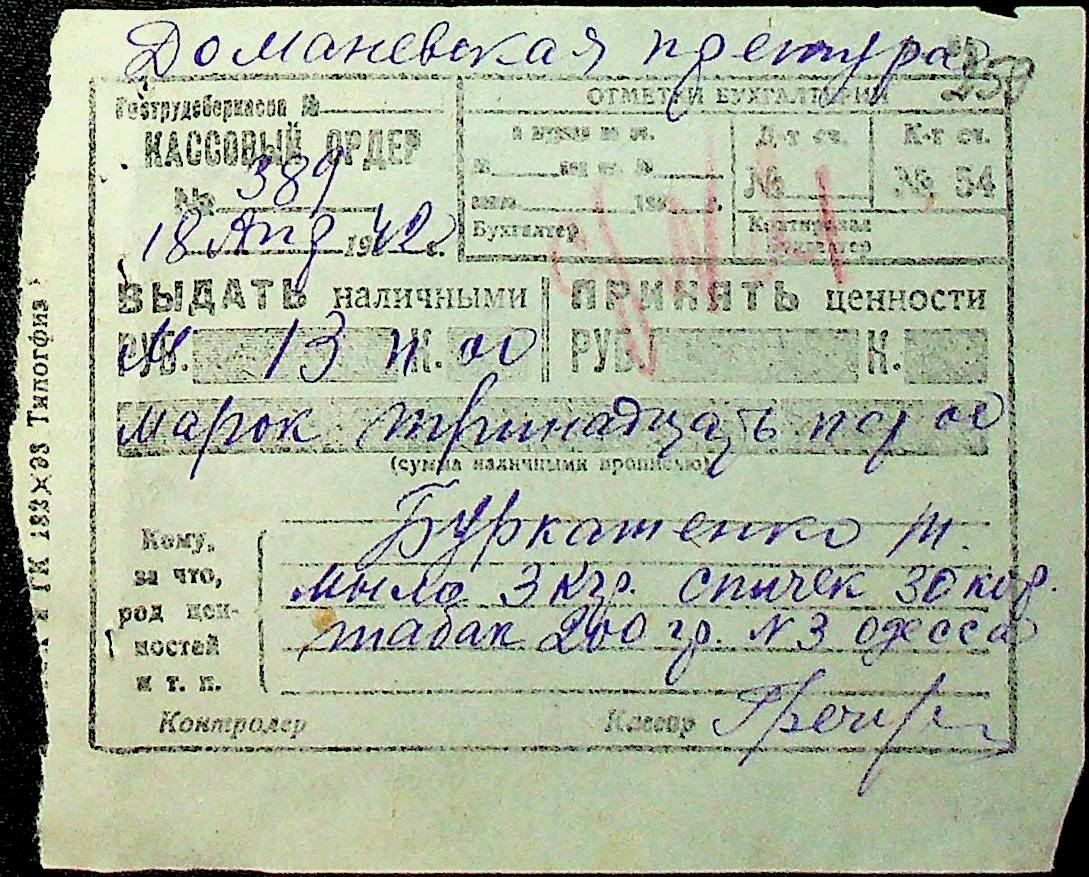 Доманевская претура
250
Гострудсберкасса №
КАССОВЫЙ ОРДЕР
№ 389
18 Апр 1942 г.
ОТМЕТКИ БУХГАЛТЕРИИ
Д-т сч.
№
К-т сч.
№ 54
Бухгалтер
Контировал
бухгалтер
ВЫДАТЬ наличными
ПРИНЯТЬ ценности
РУБ. М 13 п К. 00
РУБ. К.
марок тринадцать пф 00
(сумма наличными прописью)
Кому,
за что,
род цен-
ностей
и т. п.
Буркатенко т.
мыло 3 кгр. спичек 30 кор.
табак 200 гр. N3 одесса
Контролер
Кассир
ГК 183 Типогфия